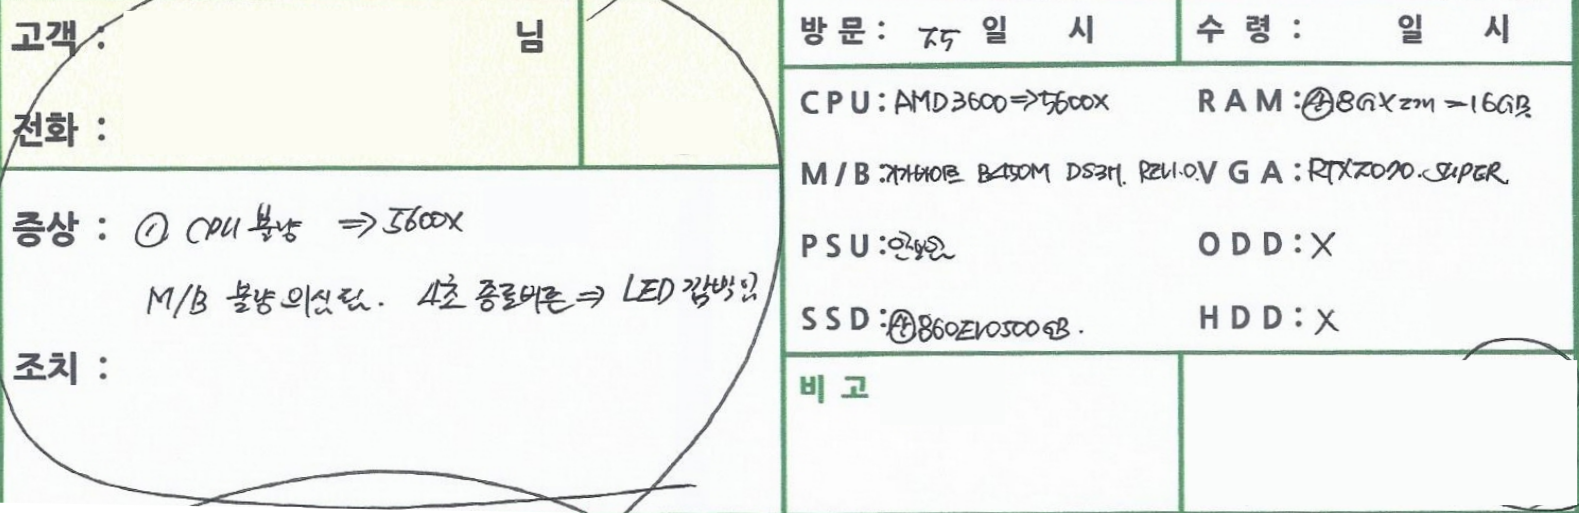 고객 : 님
전화 :
증상 : ① CPU 불량 ⇒ 5600X
M/B 불량 의심됨. 4초 종료버튼 ⇒ LED 깜박임
조치 :
방문 : 일 시
수령 : 일 시
CPU : AMD 3600 ⇒ 5600X
RAM : 8G X 2개 = 16GB
M/B : 기가바이트 B450M DS3H. REV1.0
VGA : RTX2070.SUPER
PSU : 안보임
ODD : X
SSD : 860EVO500GB.
HDD : X
비고